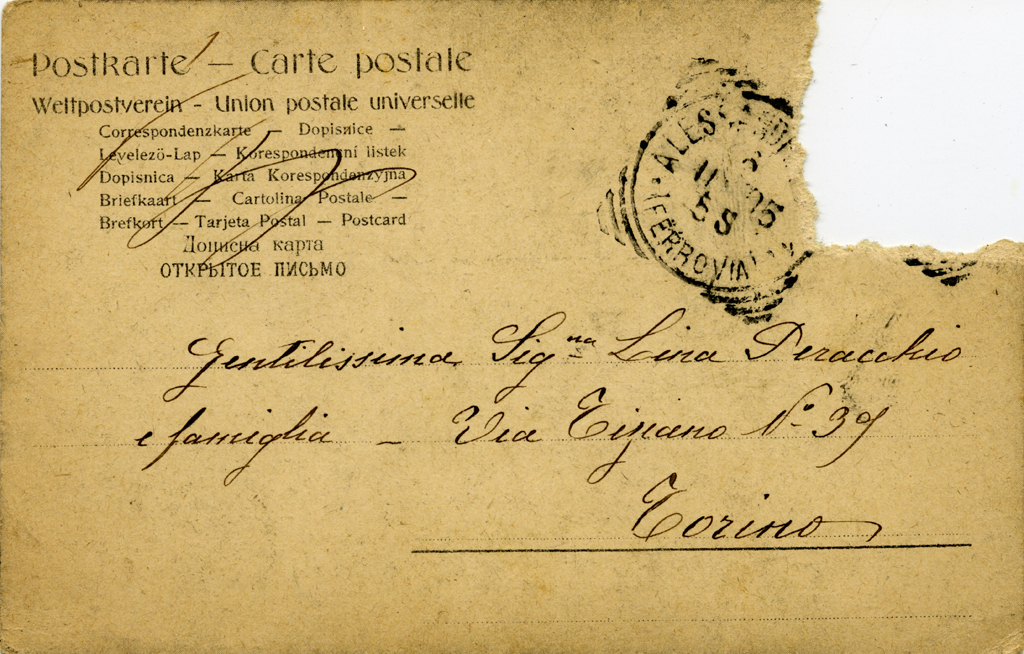 Postkarte — Carte postale
Weltpostverein - Union postale universelle
Correspondenzkarte — Dopisnice —
Levelezö-Lap — Korespondenční listek
Dopisnica — Karta Korespondenzyjna
Briefkaart — Cartolina Postale —
Brefkort — Tarjeta Postal — Postcard
Дописна карта
ОТКРЫТОЕ ПИСЬМО
ALESSANDR
11
05
5 S
(FERROVIA)
Gentilissima Signa Lina Peracchio
e famiglia — Via Tiziano No 39
Torino